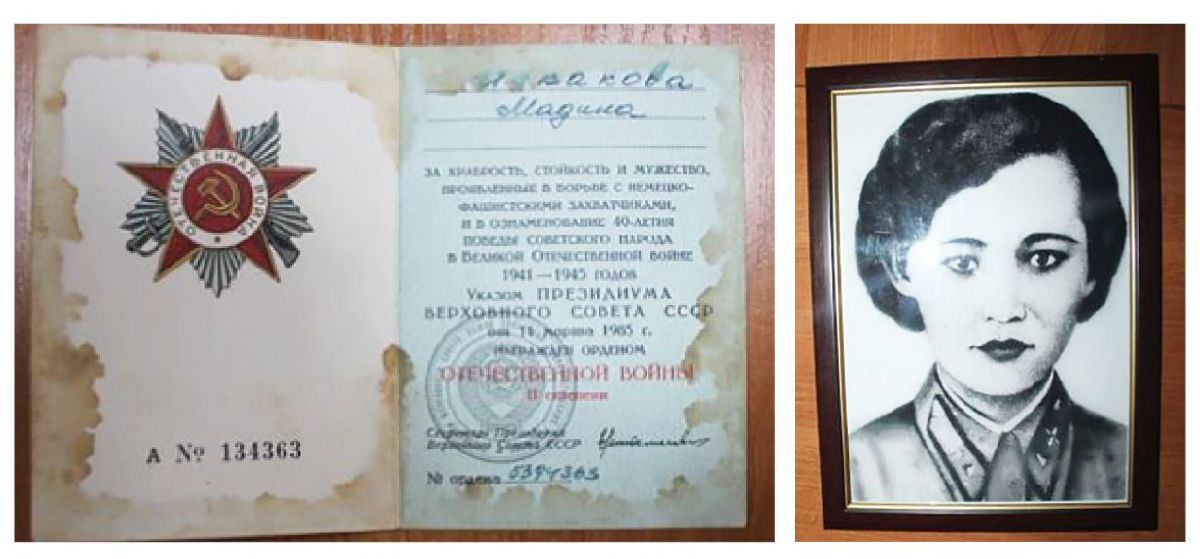 ОТЕЧЕСТВЕННАЯ ВОЙНА
А № 134363
Мадина
ЗА ХРАБРОСТЬ, СТОЙКОСТЬ И МУЖЕСТВО,
ПРОЯВЛЕННЫЕ В БОРЬБЕ С НЕМЕЦКО-
ФАШИСТСКИМИ ЗАХВАТЧИКАМИ,
И В ОЗНАМЕНОВАНИЕ 40-ЛЕТИЯ
ПОБЕДЫ СОВЕТСКОГО НАРОДА
В ВЕЛИКОЙ ОТЕЧЕСТВЕННОЙ ВОЙНЕ
1941—1945 ГОДОВ
УКАЗОМ ПРЕЗИДИУМА
ВЕРХОВНОГО СОВЕТА СССР
от 11 марта 1985 г.
НАГРАЖДЕН ОРДЕНОМ
ОТЕЧЕСТВЕННОЙ ВОЙНЫ
II степени
Секретарь Президиума
Верховного Совета СССР
№ ордена 5394363